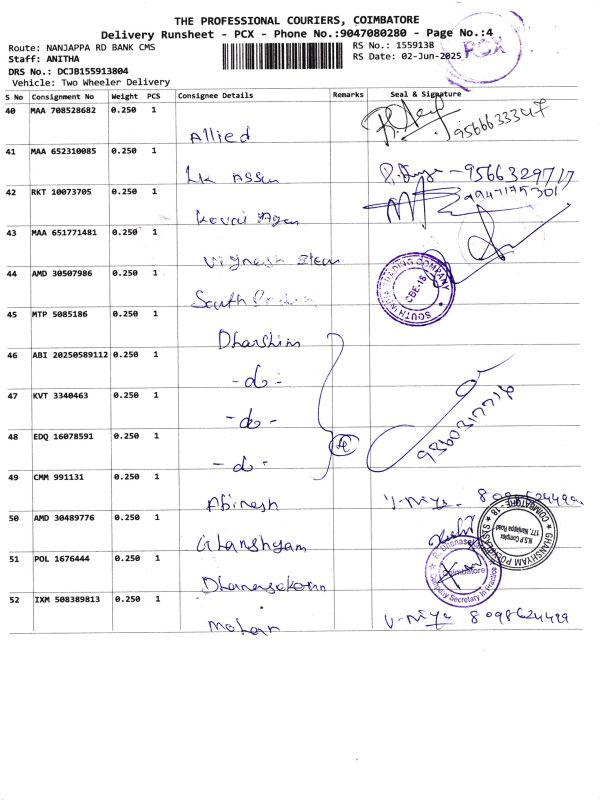 THE PROFESSIONAL COURIERS, COIMBATORE
Delivery Runsheet - PCX - Phone No.:9047080280 - Page No.:4
Route: NANJAPPA RD BANK CMS
RS No.: 1559138
Staff: ANITHA
RS Date: 02-Jun-2025
DRS No.: DCJB155913804
Vehicle: Two Wheeler Delivery
PCX
S No Consignment No Weight PCS Consignee Details Remarks Seal & Signature
40 MAA 708528682 0.250 1
Allied
9566633347
41 MAA 652310085 0.250 1
Lk Assn
9566329717
42 RKT 10073705 0.250 1
Kovai Agen
9947175301
43 MAA 651771481 0.250 1
Vignesh Steen
44 AMD 30507986 0.250 1
South
SOUTH INDIA TRADING COMPANY
CBE-18
45 MTP 5085186 0.250 1
Dharshini
46 ABI 20250589112 0.250 1
- do -
47 KVT 3340463 0.250 1
- do -
9360317716
48 EDQ 16078591 0.250 1
- do -
4
49 CMM 991131 0.250 1
Abinesh
8098624499
50 AMD 30489776 0.250 1
Ghanshyam
GHANSHYAM POLY SACKS
COIMBATORE - 18
M.S.P Complex
177, Nanjappa Road
51 POL 1676444 0.250 1
Dhanasekaran
Coimbatore
Company Secretary in Practice
52 IXM 508389813 0.250 1
Mohan
8098624499